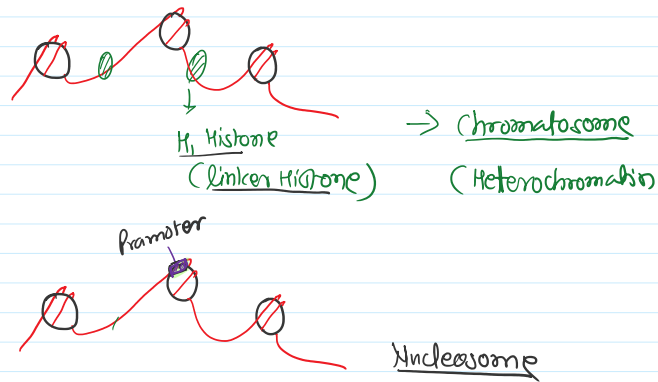 H1 Histone
(linker Histone)
→ Chromatosome
(Heterochromatin
Pramoter
Nucleosome